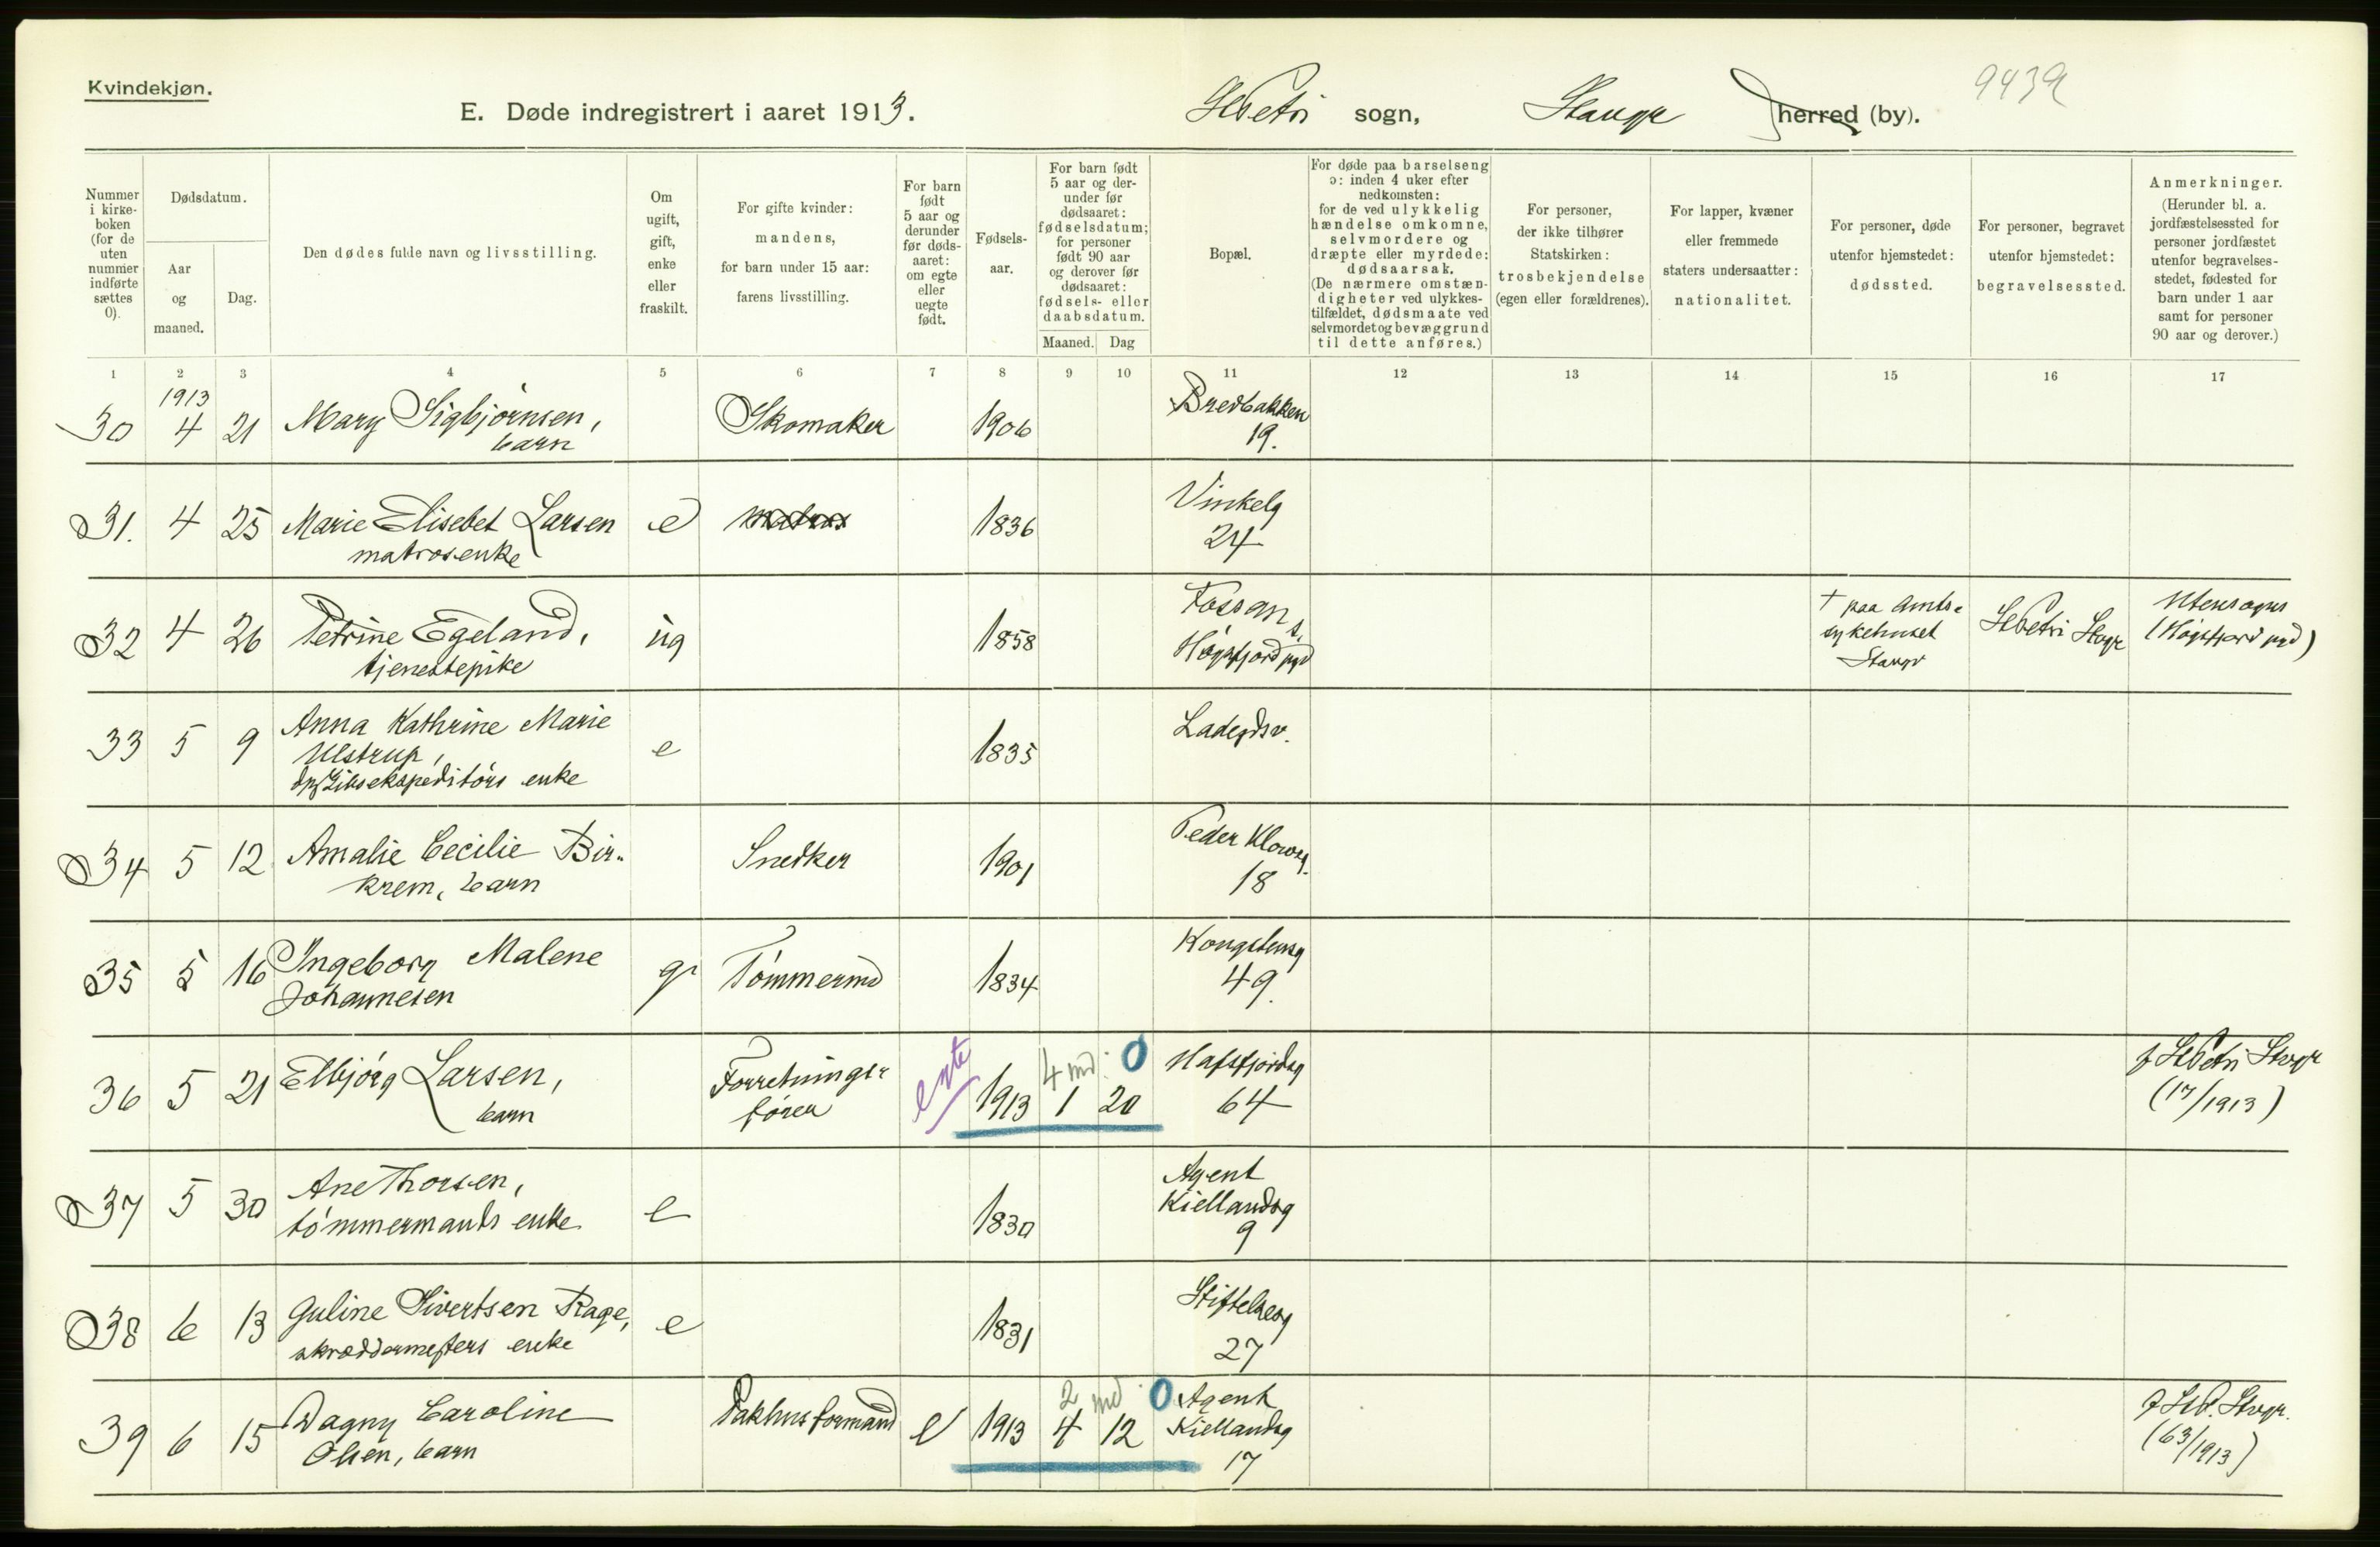 Kvindekjøn.
E. Døde indregistrert i aaret 1913.
St Petri sogn, Stavgr herred (by).
943
Nummer i kirke-boken (for de uten nummer indførte sættes 0).
Dødsdatum.
Aar og maaned.
Dag.
Den dødes fulde navn og livsstilling.
Om ugift, gift, enke eller fraskilt.
For gifte kvinder: mandens, for barn under 15 aar: farens livsstilling.
For barn født 5 aar og derunder før døds-aaret: om egte eller uegte født.
Fødsels-aar.
For barn født 5 aar og der-under før dødsaaret: fødselsdatum; for personer født 90 aar og derover før dødsaaret: fødsels- eller daabsdatum.
Maaned. Dag
Bopæl.
For døde paa barselseng ɔ: inden 4 uker efter nedkomsten: for de ved ulykkelig hændelse omkomne, selvmordere og dræpte eller myrdede: dødsaarsak. (De nærmere omstæn-digheter ved ulykkes-tilfældet, dødsmaate ved selvmordet og bevæggrund til dette anføres.)
For personer, der ikke tilhører Statskirken: trosbekjendelse (egen eller forældrenes).
For lapper, kvæner eller fremmede staters undersaatter: nationalitet.
For personer, døde utenfor hjemstedet: dødssted.
For personer, begravet utenfor hjemstedet: begravelsessted.
Anmerkninger. (Herunder bl. a. jordfæstelsessted for personer jordfæstet utenfor begravelses-stedet, fødested for barn under 1 aar samt for personer 90 aar og derover.)
1 2 3 4 5 6 7 8 9 10 11 12 13 14 15 16 17
1913
30 4 21 Mary Sigbjørnsen, Skomaker 1906 Bredbakken
barn 19.
31. 4 25 Marie Elisebet Larsen e matros 1836 Vinkelg
matrosenke 24
32 4 26 Petrine Egeland, ug 1858 Fossan, Høgsfjord pgd
tjenestepike
+ paa Amts sykehuset Stavgr
St Petri Stvgr
Utensogns (Høgsfjord pgd)
33 5 9 Anna Kathrine Marie e 1835 Ladegdsv.
Ulstrup,
ekspeditørs enke
34 5 12 Amalie Cecilie Bir- Snedker 1901 Peder Klowsg.
krem, barn 18
35 5 16 Ingeborg Malene g Tømmermd 1834 Kongstensg
Johannesen 49.
4 md: 0
36 5 21 Elbjørg Larsen, Forretnings- egte 1913 1 20 Hafsfjordsg f St Petri Stvgr
barn fører 64 (17/1913)
37 5 30 Ane Thorsen, e 1830 Agent
tømmermands enke Kiellandsg
9
38 6 13 Guline Sivertsen Rage, e 1831 Stiftelsesg
skræddermesters enke 27
2 md 0
39 6 15 Dagny Caroline Pakhusformand e 1913 4 12 Agent f St P. Stvgr.
Olsen, barn Kiellandsg (63/1913)
17